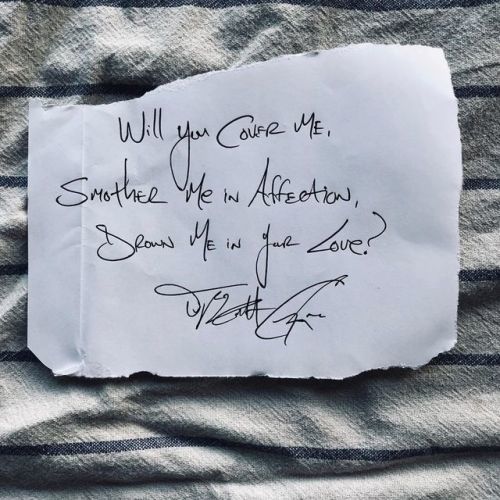 Will you Cover Me,
Smother Me in Affection,
Drown Me in your Love?